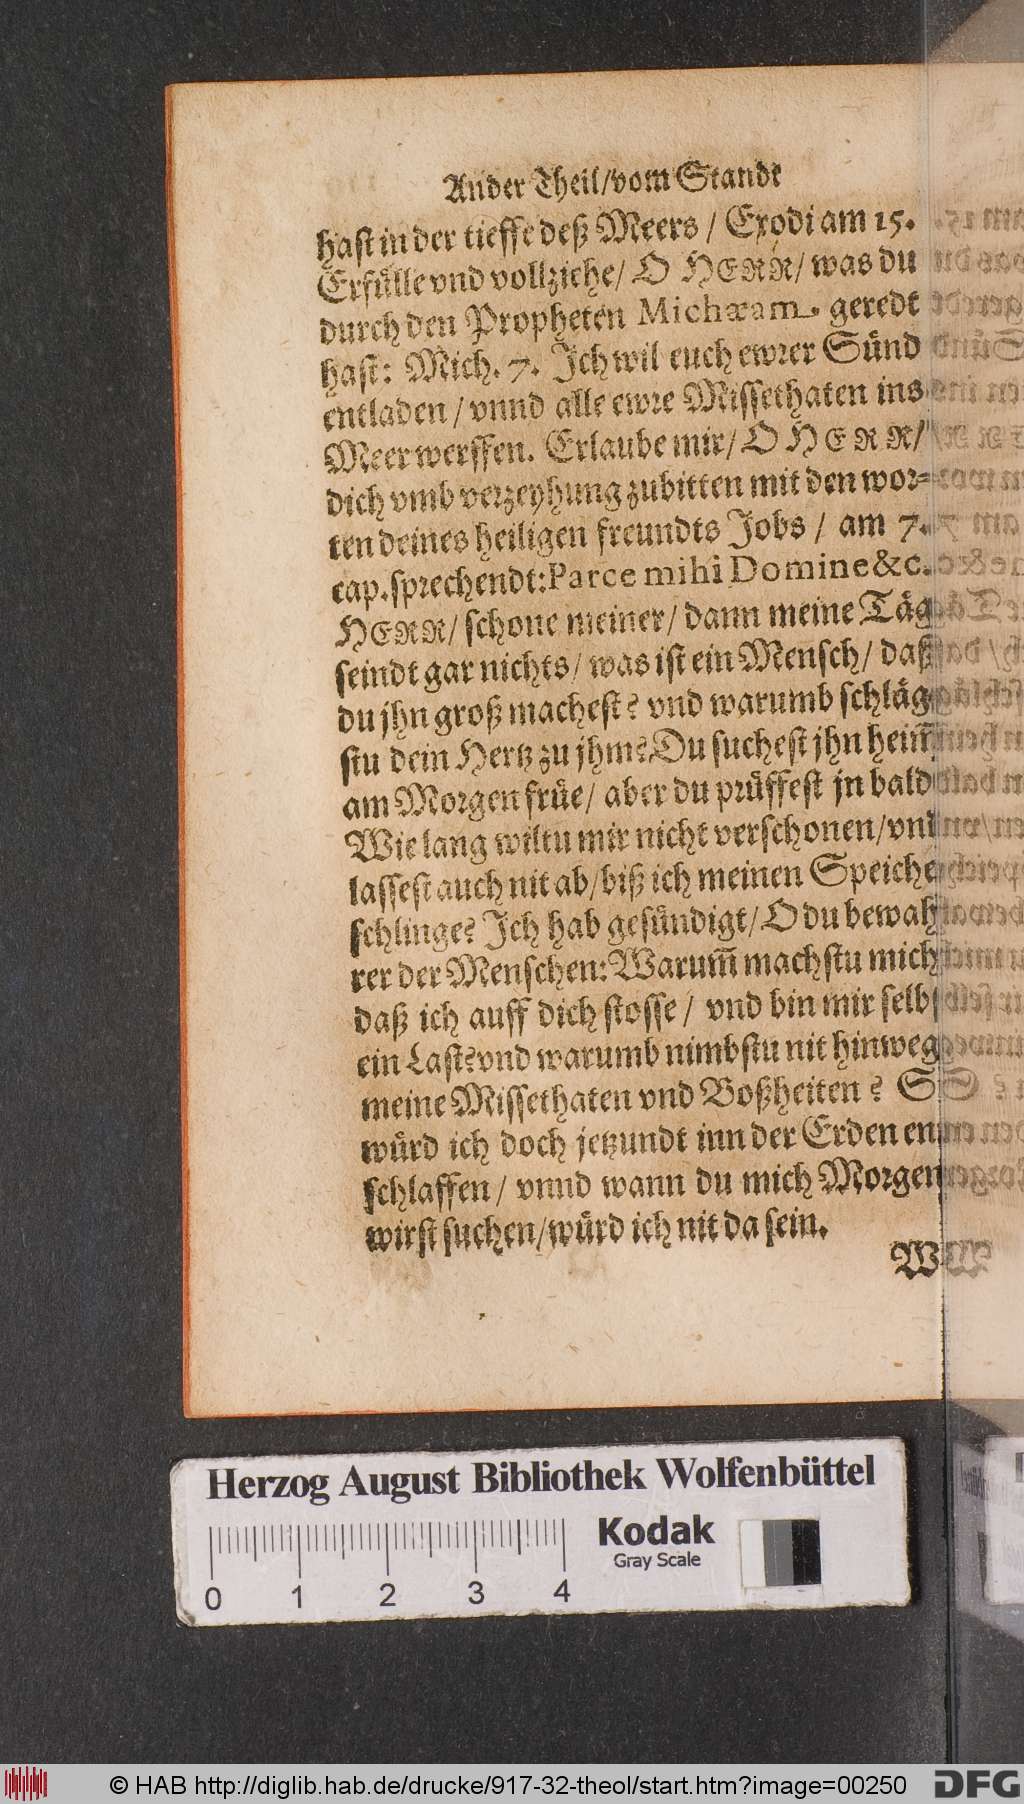 Ander Theil/vom Stande
hast in der tieffe deß Meers / Exodi am 15.
Erfülle vnd vollziehe/ O HERR/ was du
durch den Propheten Michæam. geredt
hast: Mich. 7. Ich wil euch ewrer Sünd
entladen / vnnd alle ewre Missethaten ins
Meer werffen. Erlaube mir/ O HERR/
dich vmb verzeyhung zubitten mit den wor-
ten deines heiligen freundts Jobs / am 7.
cap. sprechendt: Parce mihi Domine &c.
HERR/ schone meiner/ dann meine Täg
seindt gar nichts/ was ist ein Mensch/ daß
du jhn groß machest? vnd warumb schläg
stu dein Hertz zu jhm? Du suchest jhn heim̃
am Morgen früe/ aber du prüffest jn bald
Wie lang wiltu mir nicht verschonen/ vnd
lassest auch nit ab/ biß ich meinen Speichel
schlinge? Ich hab gesündigt/ O du bewah
rer der Menschen: Warum̃ machstu mich
daß ich auff dich stosse / vnd bin mir selbs
ein Last? vnd warumb nimbstu nit hinweg
meine Missethaten vnd Boßheiten? 
würd ich doch jetzundt inn der Erden
schlaffen / vnnd wann du mich Morgen
wirst suchen/ würd ich nit da sein.
Herzog August Bibliothek Wolfenbüttel
Kodak
Gray Scale
0 1 2 3 4
© HAB http://diglib.hab.de/drucke/917-32-theol/start.htm?image=00250
DFG